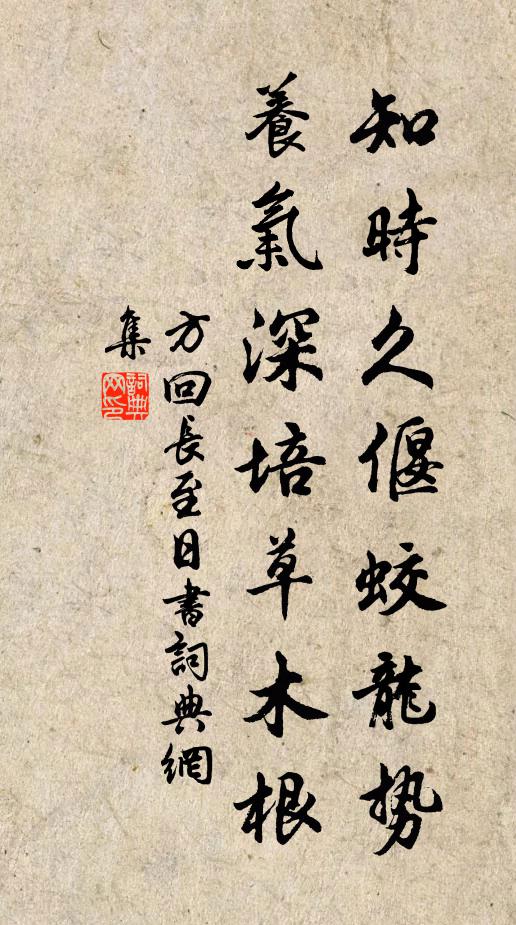 知時久偃蛟龍勢
養氣深培草木根
方回長至日書詞典網
集
詞典網印